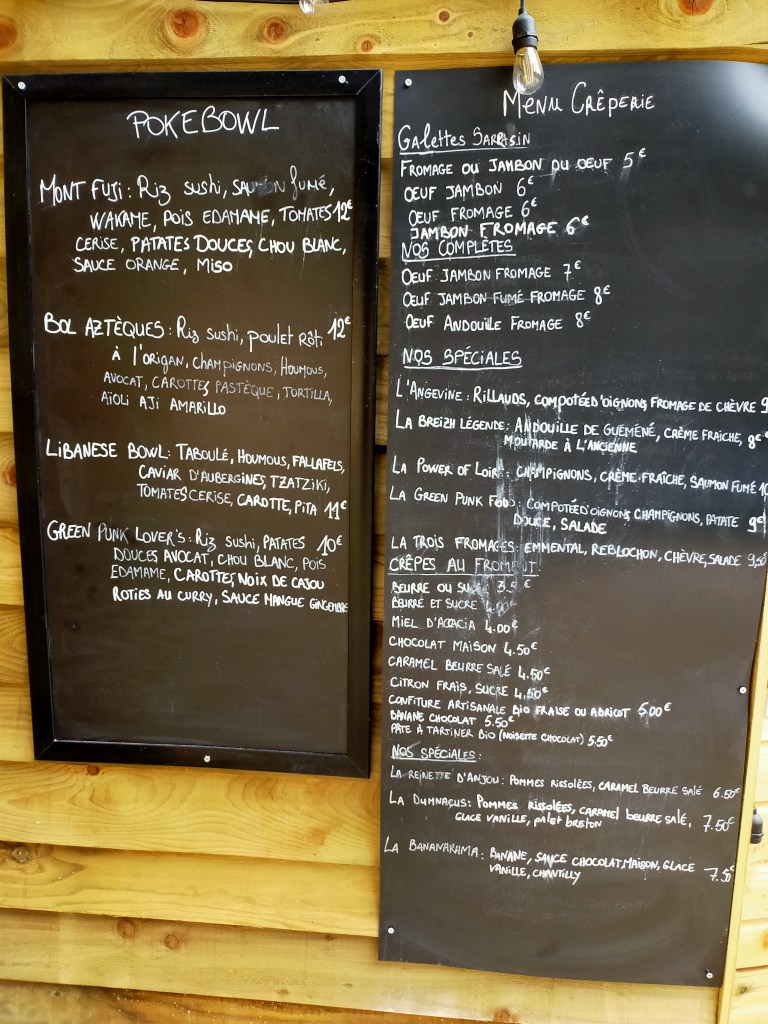 POKEBOWL
MONT FUJI: RIZ SUSHI, SAUMON FUMÉ,
WAKAME, POIS EDAMAME, TOMATES 12€
CERISE, PATATES DOUCES, CHOU BLANC,
SAUCE ORANGE, MISO
BOL AZTÈQUES: RIZ SUSHI, POULET RÔTI 12€
À L'ORIGAN, CHAMPIGNONS, HOUMOUS,
AVOCAT, CAROTTES PASTÈQUE, TORTILLA,
AÏOLI AJI AMARILLO
LIBANESE BOWL: TABOULÉ, HOUMOUS, FALLAFELS,
CAVIAR D'AUBERGINES, TZATZIKI,
TOMATES CERISE, CAROTTE, PITA 11€
GREEN PUNK LOVER'S: RIZ SUSHI, PATATES 10€
DOUCES AVOCAT, CHOU BLANC, POIS
EDAMAME, CAROTTES, NOIX DE CAJOU
ROTIES AU CURRY, SAUCE MANGUE GINGEMBRE
MENU CRÊPERIE
GALETTES SARRASIN
FROMAGE OU JAMBON OU OEUF 5€
OEUF JAMBON 6€
OEUF FROMAGE 6€
JAMBON FROMAGE 6€
NOS COMPLÈTES
OEUF JAMBON FROMAGE 7€
OEUF JAMBON FUMÉ FROMAGE 8€
OEUF ANDOUILLE FROMAGE 8€
NOS SPÉCIALES
L'ANGEVINE: RILLAUDS, COMPOTÉE D'OIGNONS, FROMAGE DE CHÈVRE 9
LA BREIZH LÉGENDE: ANDOUILLE DE GUEMÉNÉ, CRÈME FRAICHE, 8€
MOUTARDE À L'ANCIENNE
LA POWER OF LOIR: CHAMPIGNONS, CRÈME FRAÎCHE, SAUMON FUMÉ 10
LA GREEN PUNK FOOD: COMPOTÉE D'OIGNONS CHAMPIGNONS, PATATE 9€
DOUCE, SALADE
LA TROIS FROMAGES: EMMENTAL, REBLOCHON, CHÈVRE, SALADE 9,50
CRÊPES AU FROMENT:
BEURRE OU SUCRE 3.5 €
BEURRE ET SUCRE
MIEL D'ACACIA 4.00€
CHOCOLAT MAISON 4.50€
CARAMEL BEURRE SALÉ 4.50€
CITRON FRAIS, SUCRE 4.50€
CONFITURE ARTISANALE BIO FRAISE OU ABRICOT 5.00€
BANANE CHOCOLAT 5.50€
PÂTE À TARTINER BIO (NOISETTE CHOCOLAT) 5.50€
NOS SPÉCIALES:
LA REINETTE D'ANJOU: POMMES RISSOLÉES, CARAMEL BEURRE SALÉ 6.50€
LA DUMNACUS: POMMES RISSOLÉES, CARAMEL BEURRE SALÉ, 7.50€
GLACE VANILLE, PALET BRETON
LA BANANARAMA: BANANE, SAUCE CHOCOLAT MAISON, GLACE 7.50€
VANILLE, CHANTILLY